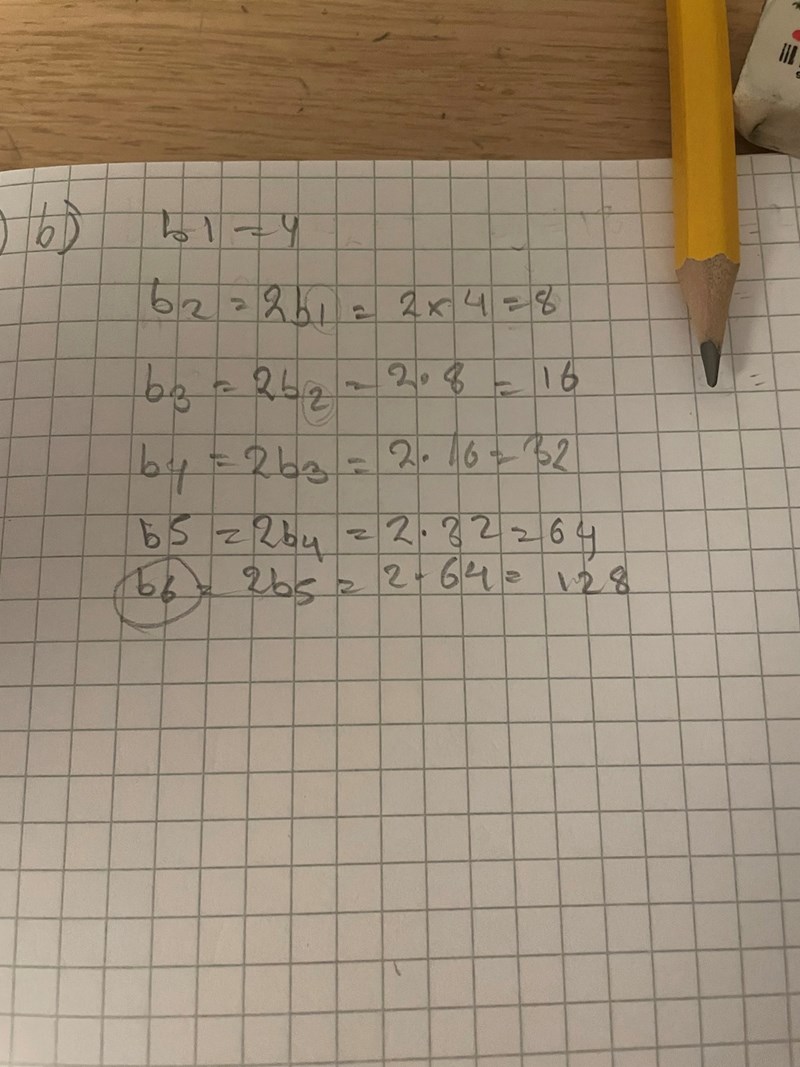 b) b1 = 4
b2 = 2b1 = 2 × 4 = 8
b3 = 2b2 = 2 · 8 = 16
b4 = 2b3 = 2 · 16 = 32
b5 = 2b4 = 2 · 32 = 64
b6 = 2b5 = 2 · 64 = 128